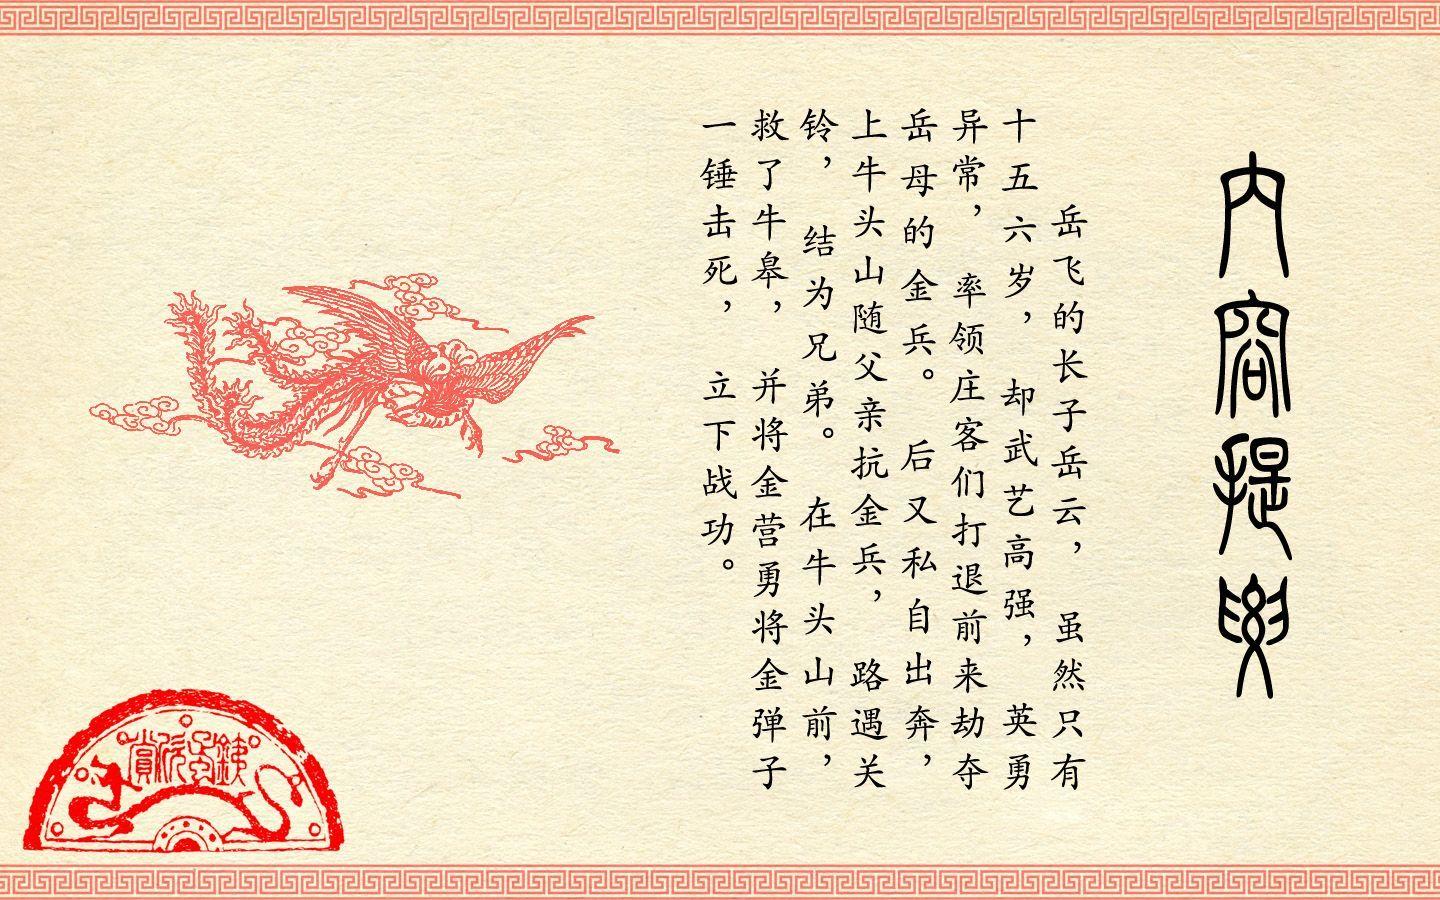 内容提要
岳飞的长子岳云，虽然只有
十五六岁，却武艺高强，英勇
异常，率领庄客们打退前来劫夺
岳母的金兵。后又私自出奔，
上牛头山随父亲抗金兵，路遇关
铃，结为兄弟。在牛头山前，
救了牛皋，并将金营勇将金弹子
一锤击死，立下战功。